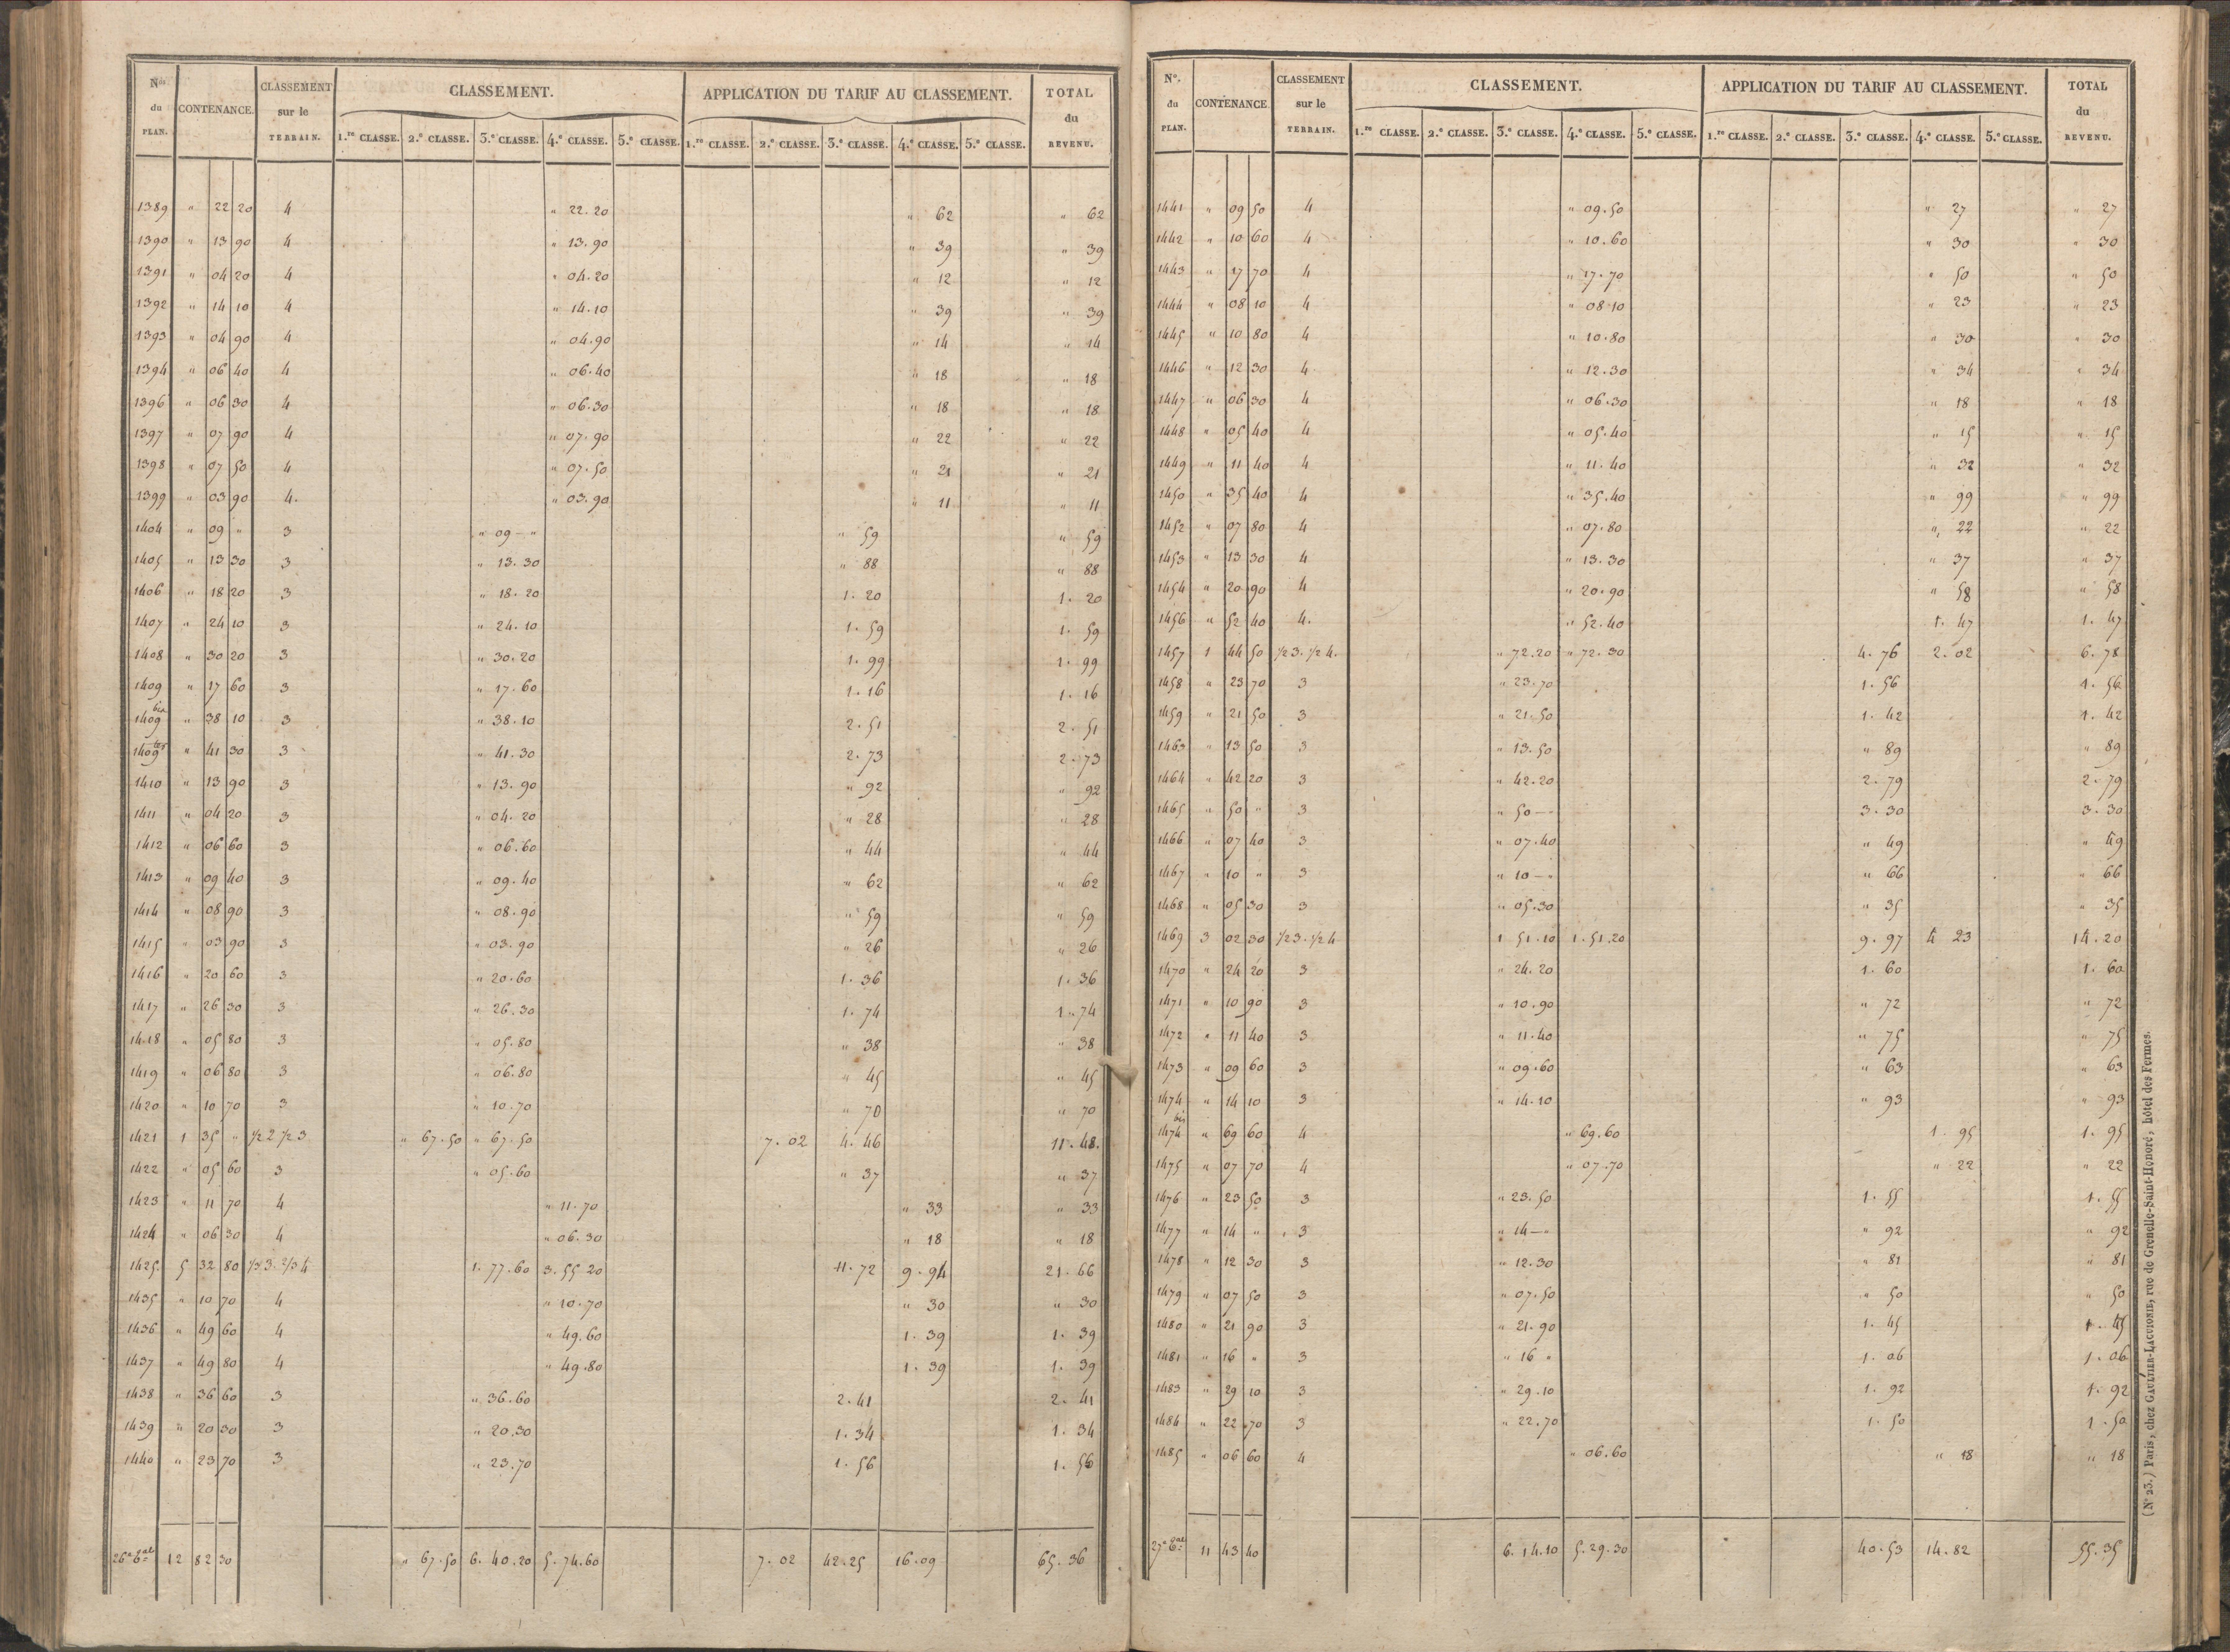 Nos du PLAN. CONTENANCE. CLASSEMENT sur le TERRAIN. CLASSEMENT. APPLICATION DU TARIF AU CLASSEMENT. TOTAL du REVENU.
1.re CLASSE. 2.e CLASSE. 3.e CLASSE. 4.e CLASSE. 5.e CLASSE. 1.re CLASSE. 2.e CLASSE. 3.e CLASSE. 4.e CLASSE. 5.e CLASSE.
1389 " 22 20 4 " 22.20 " 62 " 62
1390 " 13 90 4 " 13.90 " 39 " 39
1391 " 04 20 4 " 04.20 " 12 " 12
1392 " 14 10 4 " 14.10 " 39 " 39
1393 " 04 90 4 " 04.90 " 14 " 14
1394 " 06 40 4 " 06.40 " 18 " 18
1396 " 06 30 4 " 06.30 " 18 " 18
1397 " 07 90 4 " 07.90 " 22 " 22
1398 " 07 50 4 " 07.50 " 21 " 21
1399 " 03 90 4. " 03.90 " 11 " 11
1404 " 09 " 3 " 09 - " " 59 " 59
1405 " 13 30 3 " 13.30 " 88 " 88
1406 " 18 20 3 " 18.20 1. 20 1. 20
1407 " 24 10 3 " 24.10 1. 59 1. 59
1408 " 30 20 3 " 30.20 1. 99 1. 99
1409 " 17 60 3 " 17.60 1. 16 1. 16
1409 bis " 38 10 3 " 38.10 2. 51 2. 51
1409 ter " 41 30 3 " 41.30 2. 73 2. 73
1410 " 13 90 3 " 13.90 " 92 " 92
1411 " 04 20 3 " 04.20 " 28 " 28
1412 " 06 60 3 " 06.60 " 44 " 44
1413 " 09 40 3 " 09.40 " 62 " 62
1414 " 08 90 3 " 08.90 " 59 " 59
1415 " 03 90 3 " 03.90 " 26 " 26
1416 " 20 60 3 " 20.60 1. 36 1. 36
1417 " 26 30 3 " 26.30 1. 74 1. 74
1418 " 05 80 3 " 05.80 " 38 " 38
1419 " 06 80 3 " 06.80 " 45 " 45
1420 " 10 70 3 " 10.70 " 70 " 70
1421 1 35 " 1/2 2 1/2 3 " 67.50 " 67.50 7. 02 4. 46 11. 48.
1422 " 05 60 3 " 05.60 " 37 " 37
1423 " 11 70 4 " 11.70 " 33 " 33
1424 " 06 30 4 " 06.30 " 18 " 18
1425. 5 32 80 1/3 3. 2/3 4 1. 77.60 3. 55 20 11. 72 9. 94 21. 66
1435 " 10 70 4 " 10.70 " 30 " 30
1436 " 49 60 4 " 49.60 1. 39 1. 39
1437 " 49 80 4 " 49.80 1. 39 1. 39
1438 " 36 60 3 " 36.60 2. 41 2. 41
1439 " 20 30 3 " 20.30 1. 34 1. 34
1440 " 23 70 3 " 23.70 1. 56 1. 56
12 82 30 " 67.50 6. 40.20 5. 74.60 7. 02 42.25 16.09 65. 36
No. du PLAN. CONTENANCE. CLASSEMENT sur le TERRAIN. CLASSEMENT. APPLICATION DU TARIF AU CLASSEMENT. TOTAL du REVENU.
1.re CLASSE. 2.e CLASSE. 3.e CLASSE. 4.e CLASSE. 5.e CLASSE. 1.re CLASSE. 2.e CLASSE. 3.e CLASSE. 4.e CLASSE. 5.e CLASSE.
1441 " 09 50 4 " 09.50 " 27 " 27
1442 " 10 60 4 " 10.60 " 30 " 30
1443 " 17 70 4 " 17.70 " 50 " 50
1444 " 08 10 4 " 08 10 " 23 " 23
1445 " 10 80 4 " 10.80 " 30 " 30
1446 " 12 30 4. " 12.30 " 34 " 34
1447 " 06 30 4 " 06.30 " 18 " 18
1448 " 05 40 4 " 05.40 " 15 " 15
1449 " 11 40 4 " 11.40 " 32 " 32
1450 " 35 40 4 " 35.40 " 99 " 99
1452 " 07 80 4 " 07.80 " 22 " 22
1453 " 13 30 4 " 13.30 " 37 " 37
1454 " 20 90 4 " 20.90 " 58 " 58
1456 " 52 40 4. " 52.40 1. 47 1. 47
1457 1 44 50 1/2 3. 1/2 4. " 72.20 " 72.30 4. 76 2. 02 6. 78
1458 " 23 70 3 " 23.70 1. 56 1. 56
1459 " 21 50 3 " 21.50 1. 42 1. 42
1463 " 13 50 3 " 13.50 " 89 " 89
1464 " 42 20 3 " 42.20 2. 79 2. 79
1465 " 50 " 3 " 50 - 3. 30 3. 30
1466 " 07 40 3 " 07.40 " 49 " 49
1467 " 10 " 3 " 10 - " " 66 " 66
1468 " 05 30 3 " 05.30 " 35 " 35
1469 3 02 30 1/2 3. 1/2 4 1 51.10 1. 51.20 9. 97 4 23 14. 20
1470 " 24 20 3 " 24.20 1. 60 1. 60
1471 " 10 90 3 " 10.90 " 72 " 72
1472 " 11 40 3 " 11.40 " 75 " 75
1473 " 09 60 3 " 09.60 " 63 " 63
1474 " 14 10 3 " 14.10 " 93 " 93
1474 bis " 69 60 4 " 69.60 1. 95 1. 95
1475 " 07 70 4 " 07.70 " 22 " 22
1476 " 23 50 3 " 23.50 1. 55 1. 55
1477 " 14 " 3 " 14 - " 92 " 92
1478 " 12 30 3 " 12.30 " 81 " 81
1479 " 07 50 3 " 07.50 " 50 " 50
1480 " 21 90 3 " 21.90 1. 45 1. 45
1481 " 16 " 3 " 16 " 1. 06 1. 06
1483 " 29 10 3 " 29.10 1. 92 1. 92
1484 " 22 70 3 " 22.70 1. 50 1. 50
1485 " 06 60 4 " 06.60 " 18 " 18
11 43 40 6. 14.10 5. 29.30 40.53 14.82 55.35
(N° 23.) Paris, chez GAULTIER-LAGUIONIE, rue de Grenelle-Saint-Honoré, hôtel des Fermes.